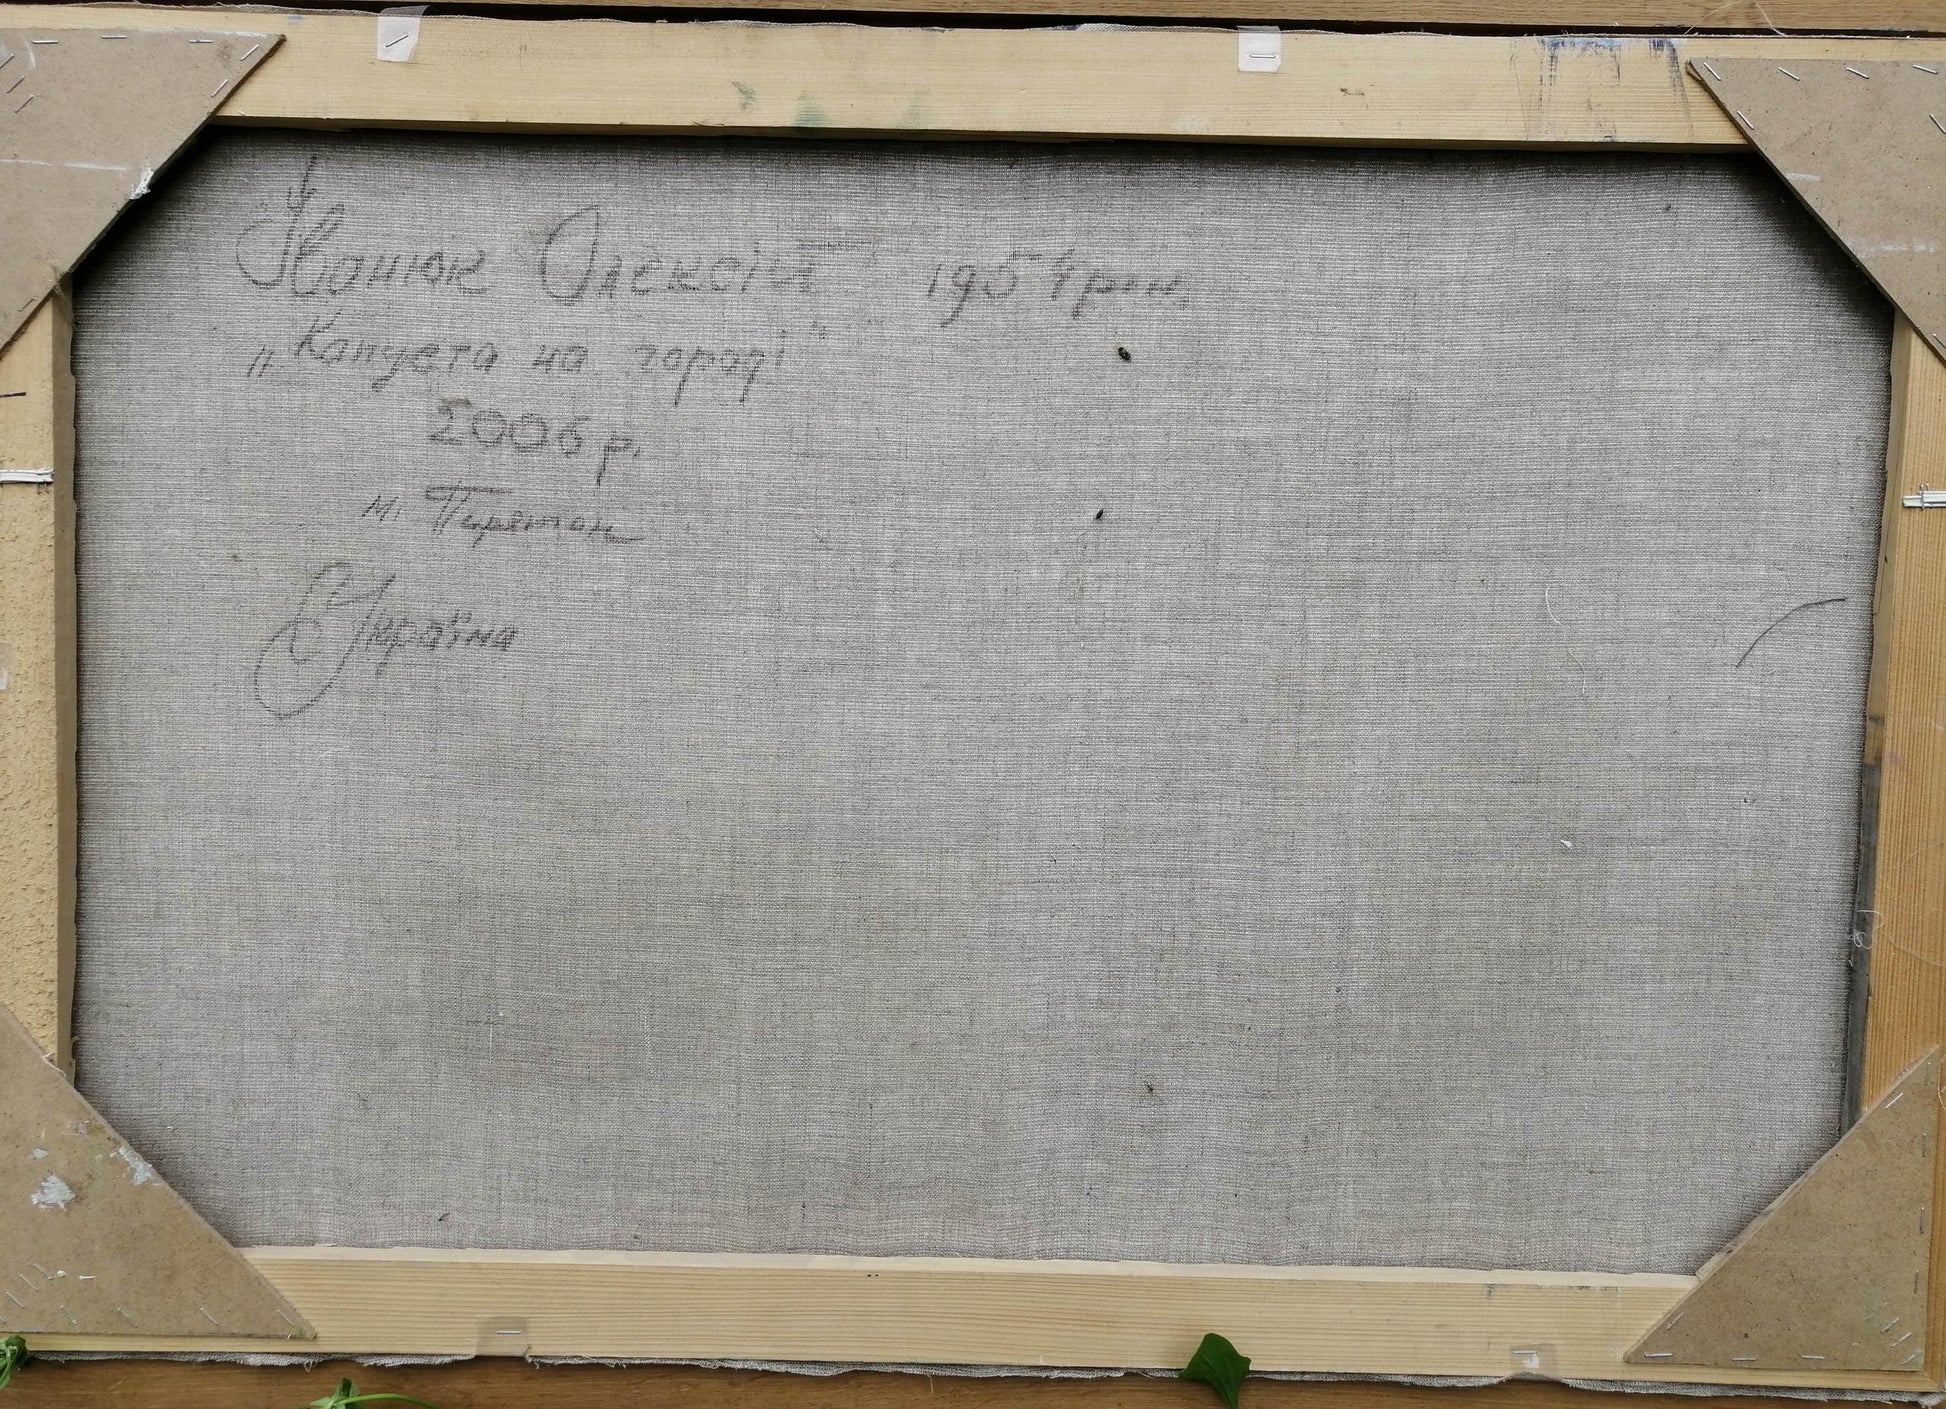 Іванюк Олексій 1954 р.н.
„Капуста на городі"
2006 р.
м. Пирятин
Україна